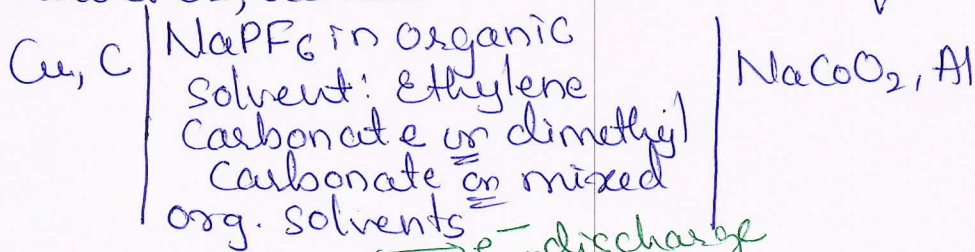 Cu, C | NaPF6 in organic | NaCoO2, Al
solvent: Ethylene
Carbonate or dimethyl
Carbonate or mixed
org. solvents
e- discharge